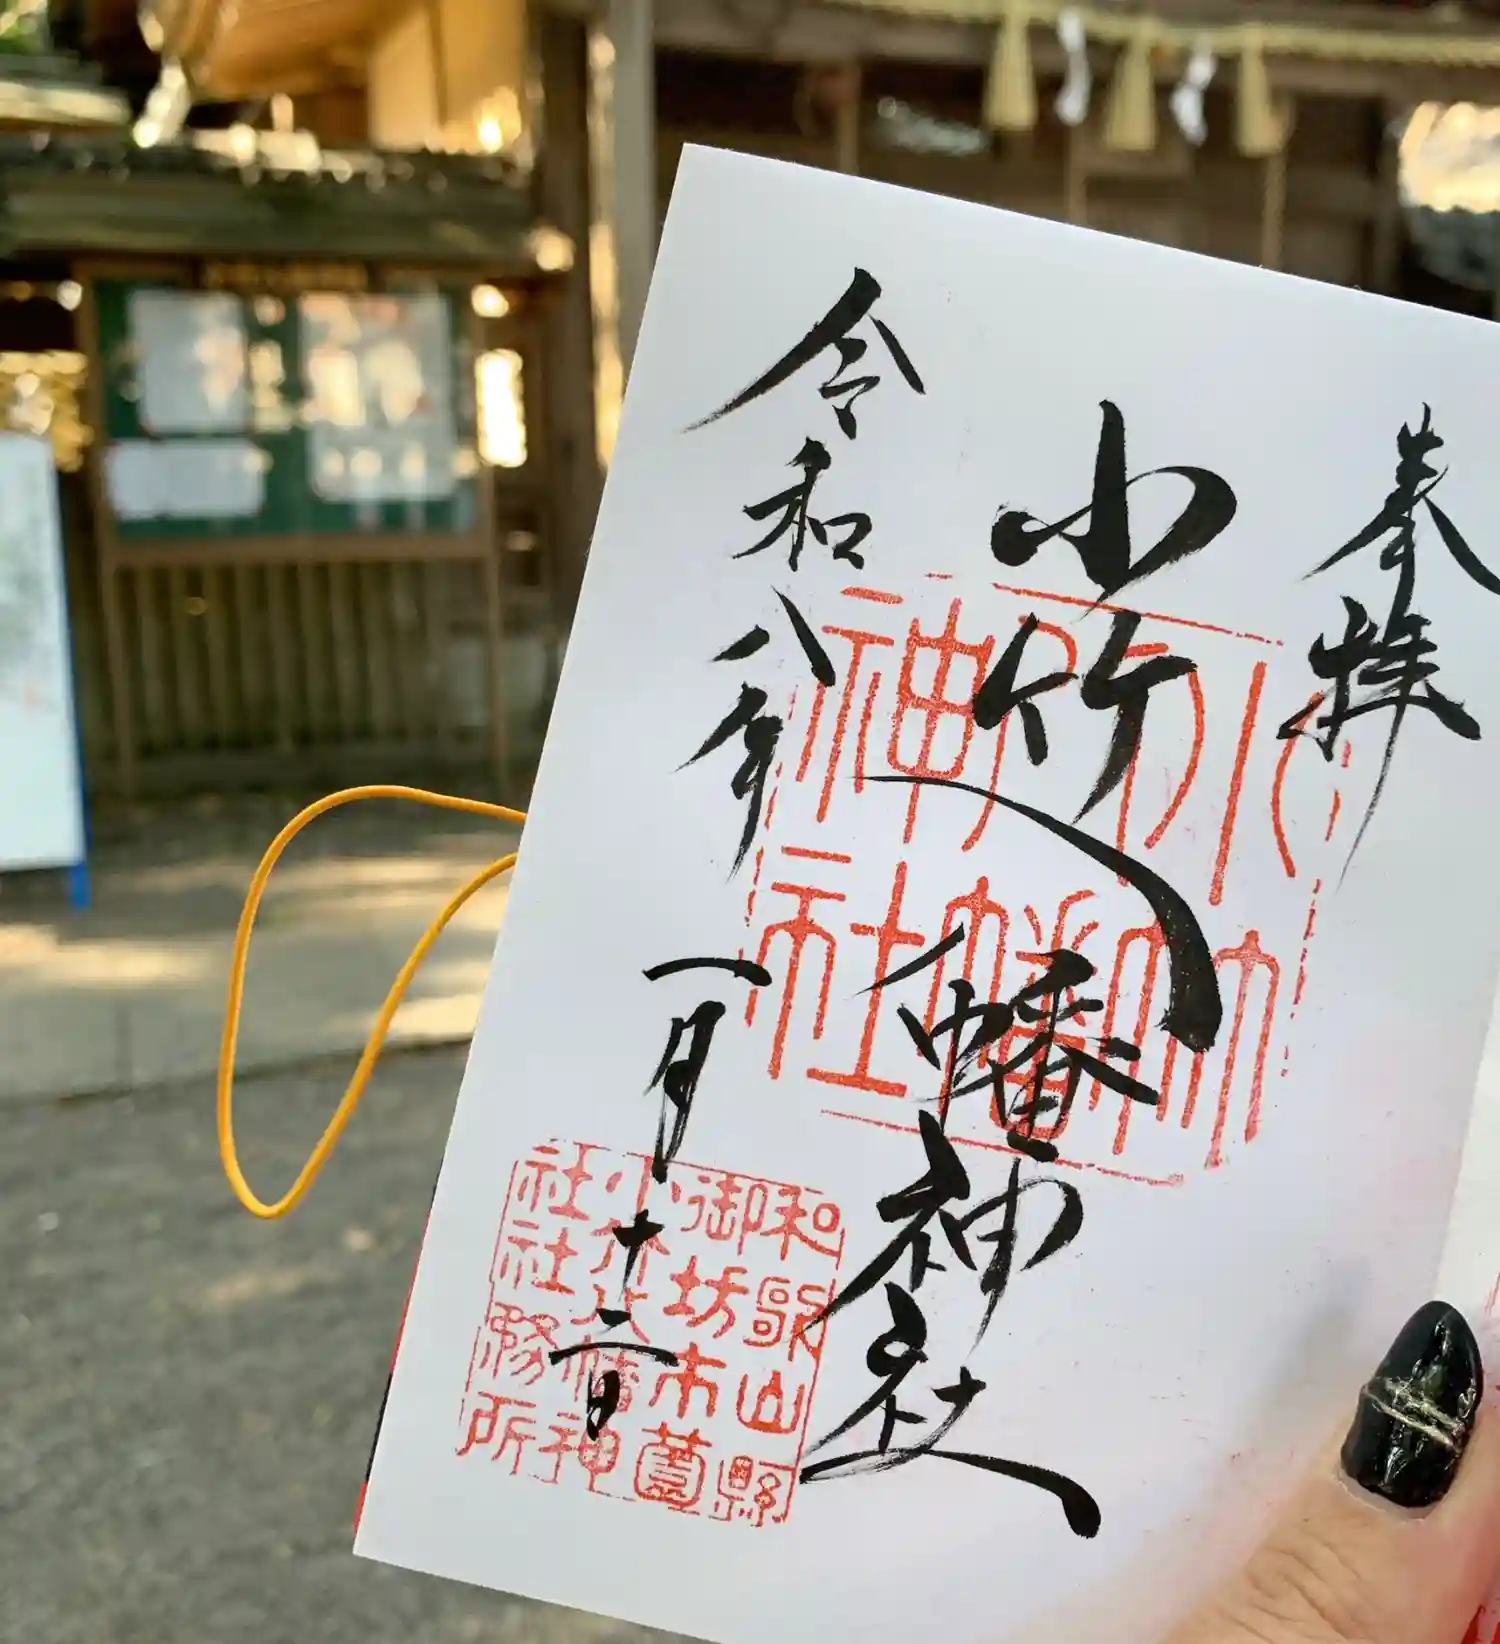 奉拝
小竹八幡神社
令和八年一月十二日
小竹
八幡
神社
和歌山縣
御坊市薗
小竹八幡神
社社務所